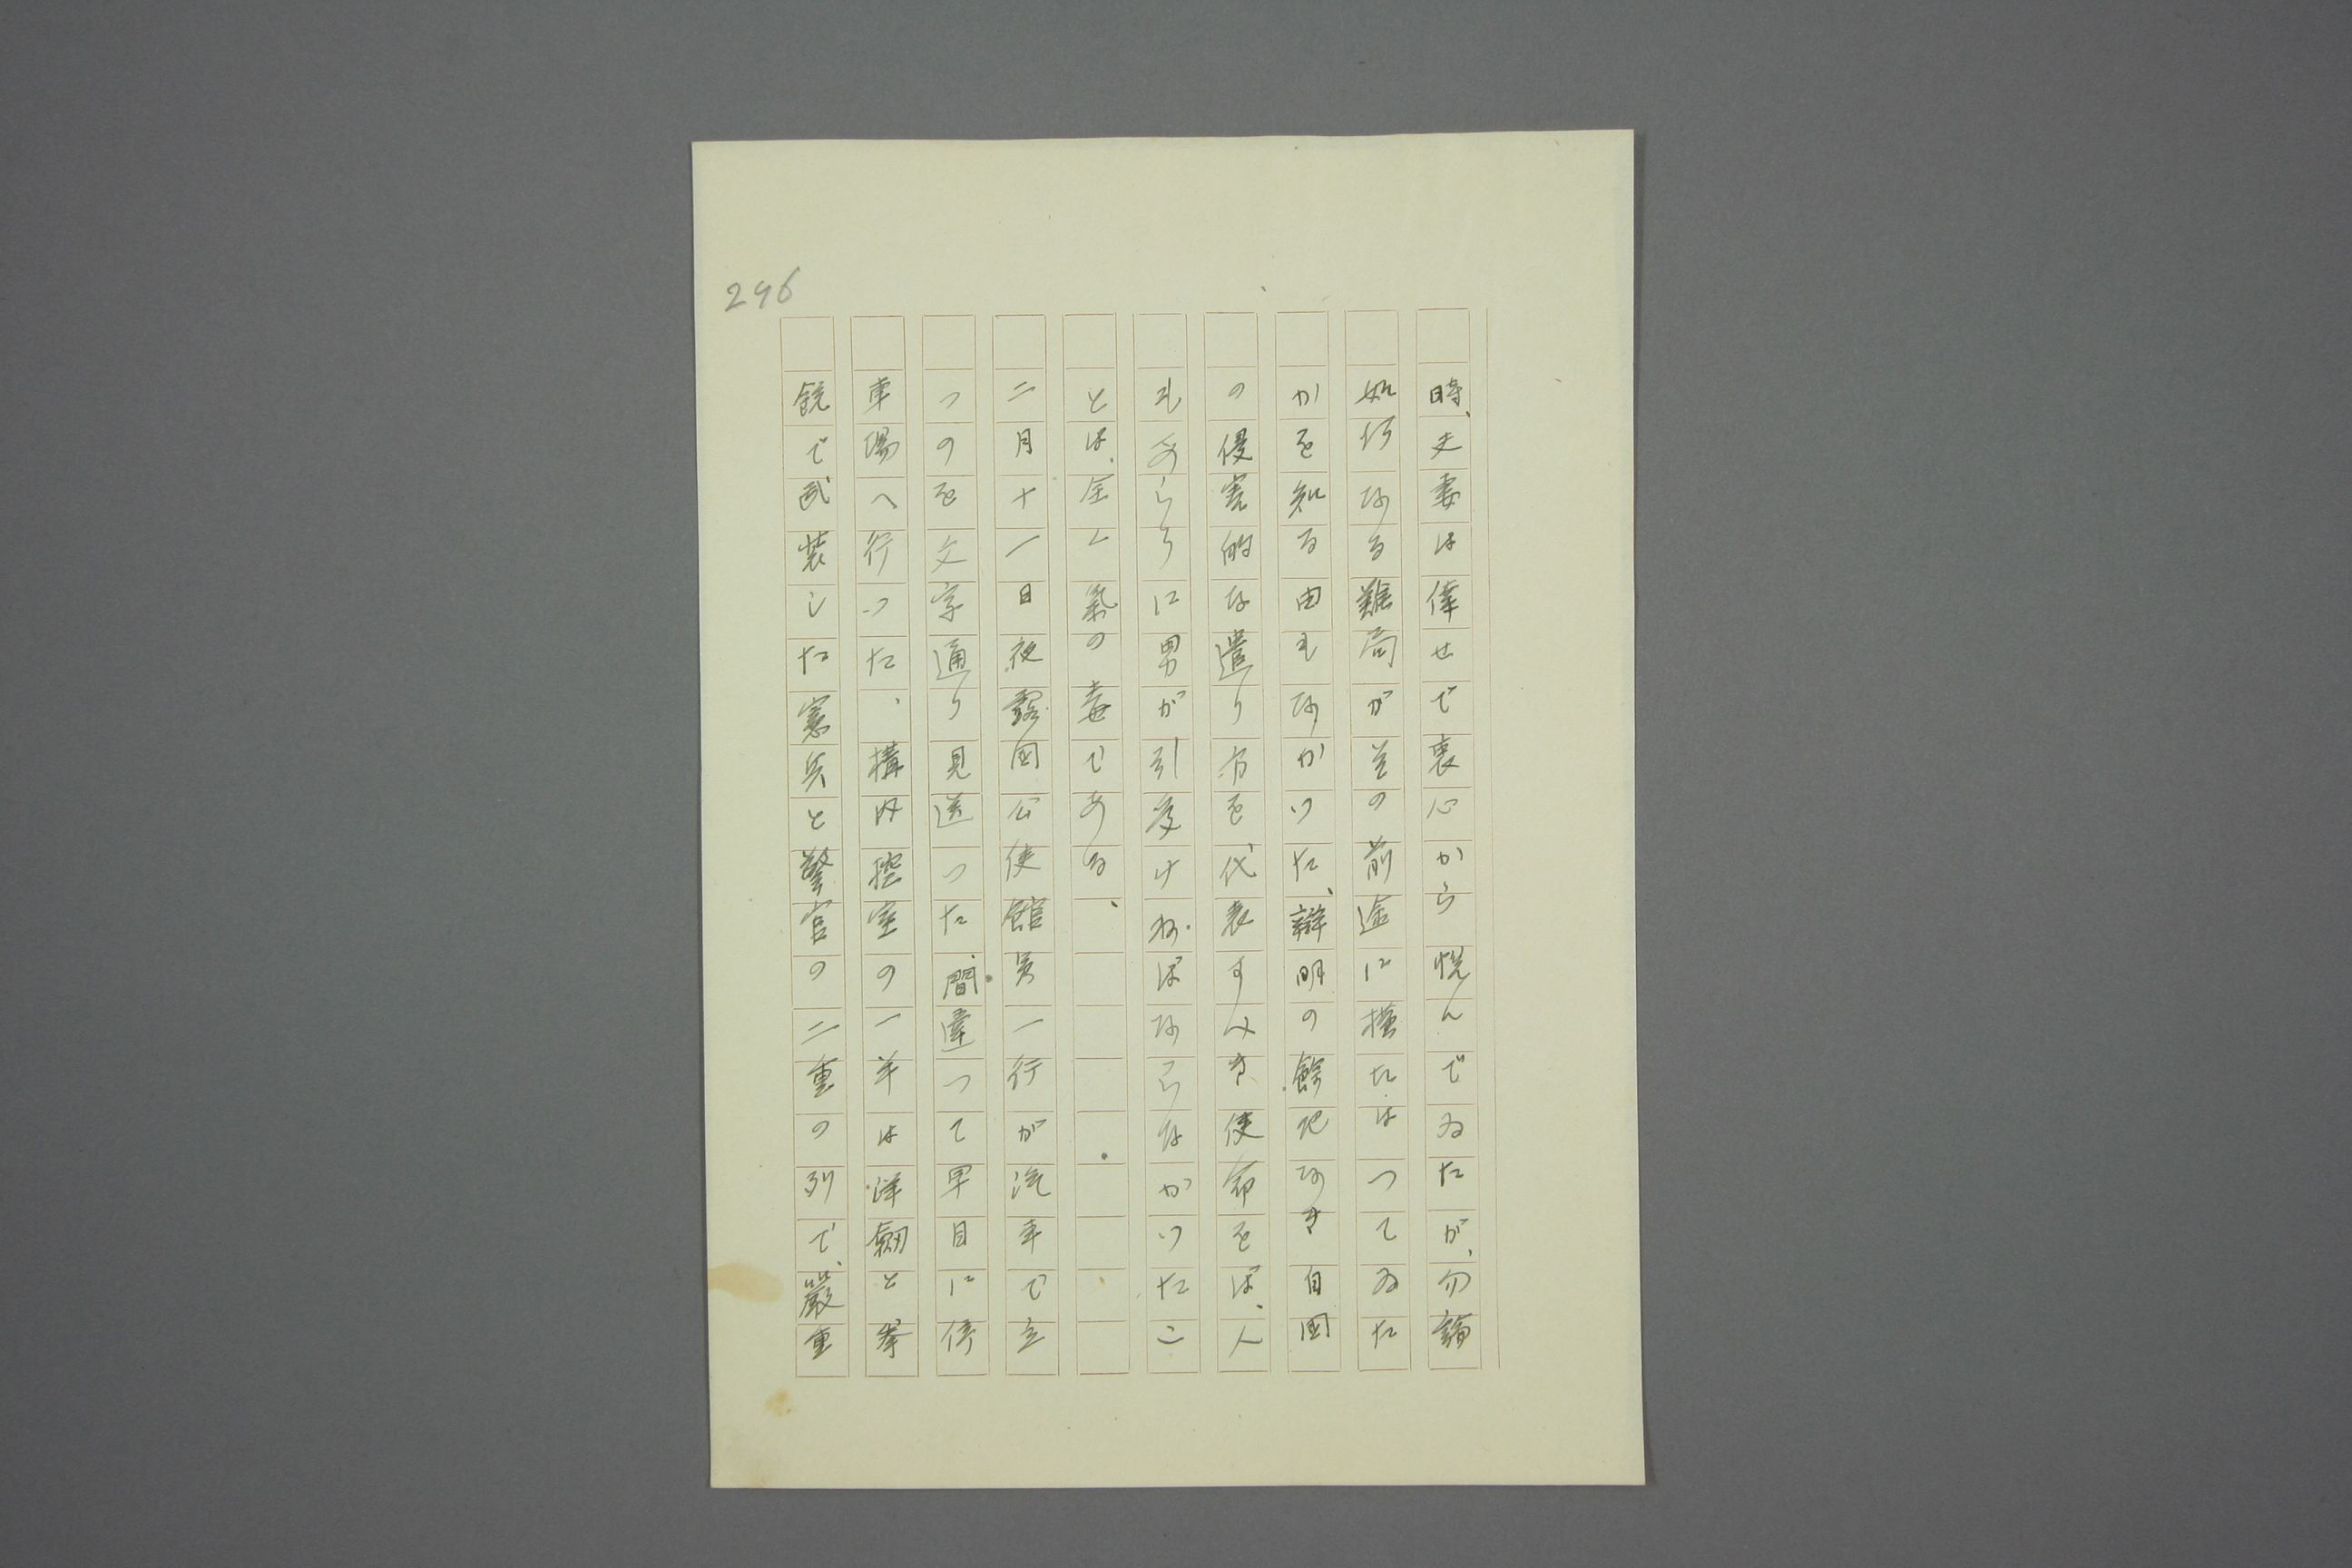 296
時、夫妻は倖せで衷心から悦んでゐたが、勿論
如何なる難局が其の前途に横たはつてゐた
かを知る由もなかつた、辯明の餘地なき自国
の侵害的な遣り方を代表すべき使命をば、人
もあらうに男が引受けねばならなかつたこ
とは、全く氣の毒である、
二月十一日夜露国公使館員一行が汽車で立
つのを文字通り見送つた、間違つて早目に停
車場へ行つた、構内控室の一半は洋剱と拳
銃で武装した憲兵と警官の二重の列で、嚴重